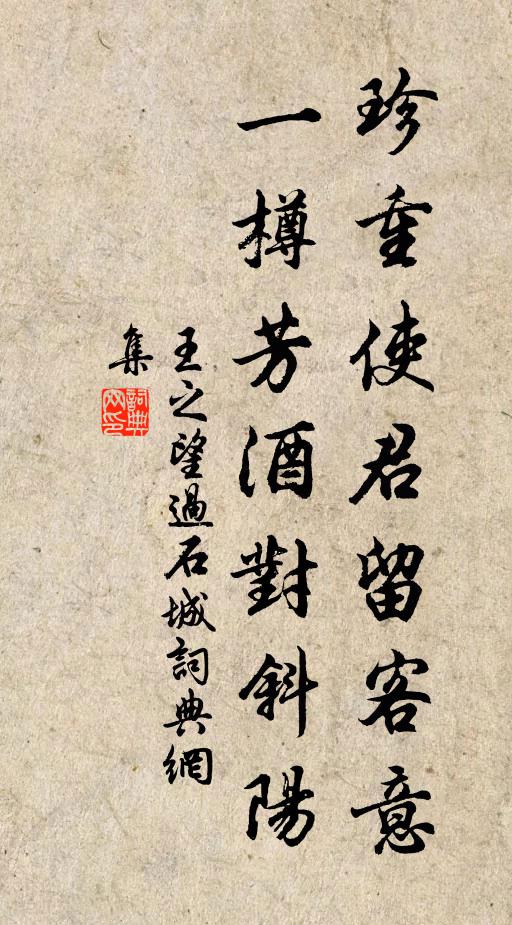 珍重使君留客意
一樽芳酒對斜陽
王之望過石城詞典網
集
詞典網印